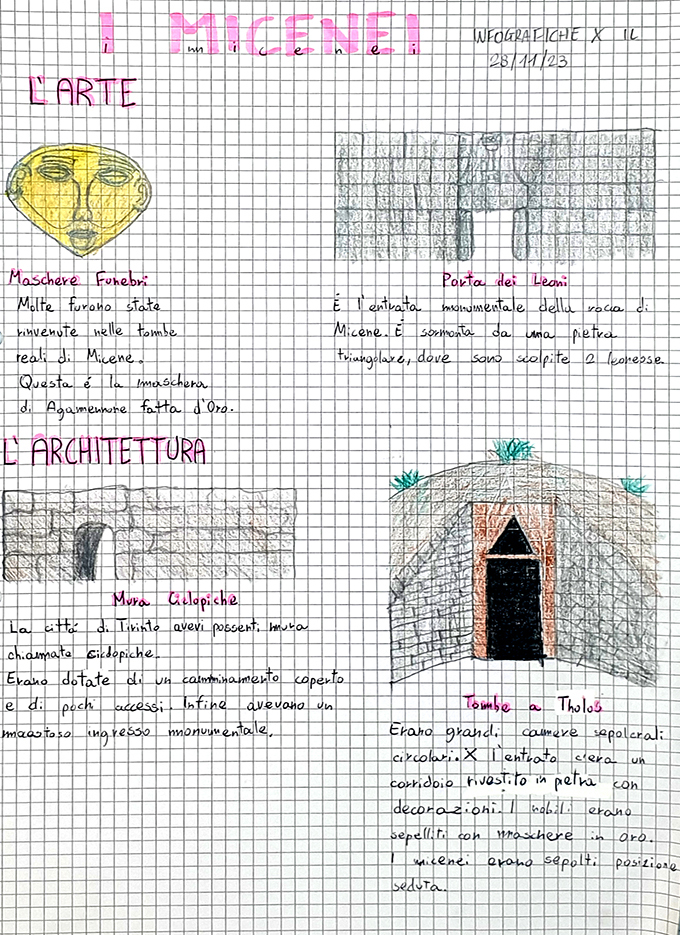 I MICENEI
i micenei
INFOGRAFICHE X IL
28/11/23
L'ARTE
Maschere Funebri
Molte furono state
rinvenute nelle tombe
reali di Micene.
Questa é la maschera
di Agamennone fatta d'Oro.
Porta dei Leoni
É l'entrata monumentale della rocca di
Micene. É sormonta da una pietra
triangolare, dove sono scolpite 2 leonesse
L'ARCHITETTURA
Mura Ciclopiche
La cittá di Tirinto avevi possenti mura
chiamate ciclopiche.
Erano dotate di un camminamento coperto
e di pochi accessi. Infine avevano un
maestoso ingresso monumentale.
Tombe a Tholos
Erano grandi camere sepolcrali
circolari. X l'entrato c'era un
corridoio rivestito in petra con
decorazioni. I nobili erano
sepelliti con maschere in oro.
I micenei erano sepolti posizione
seduta.